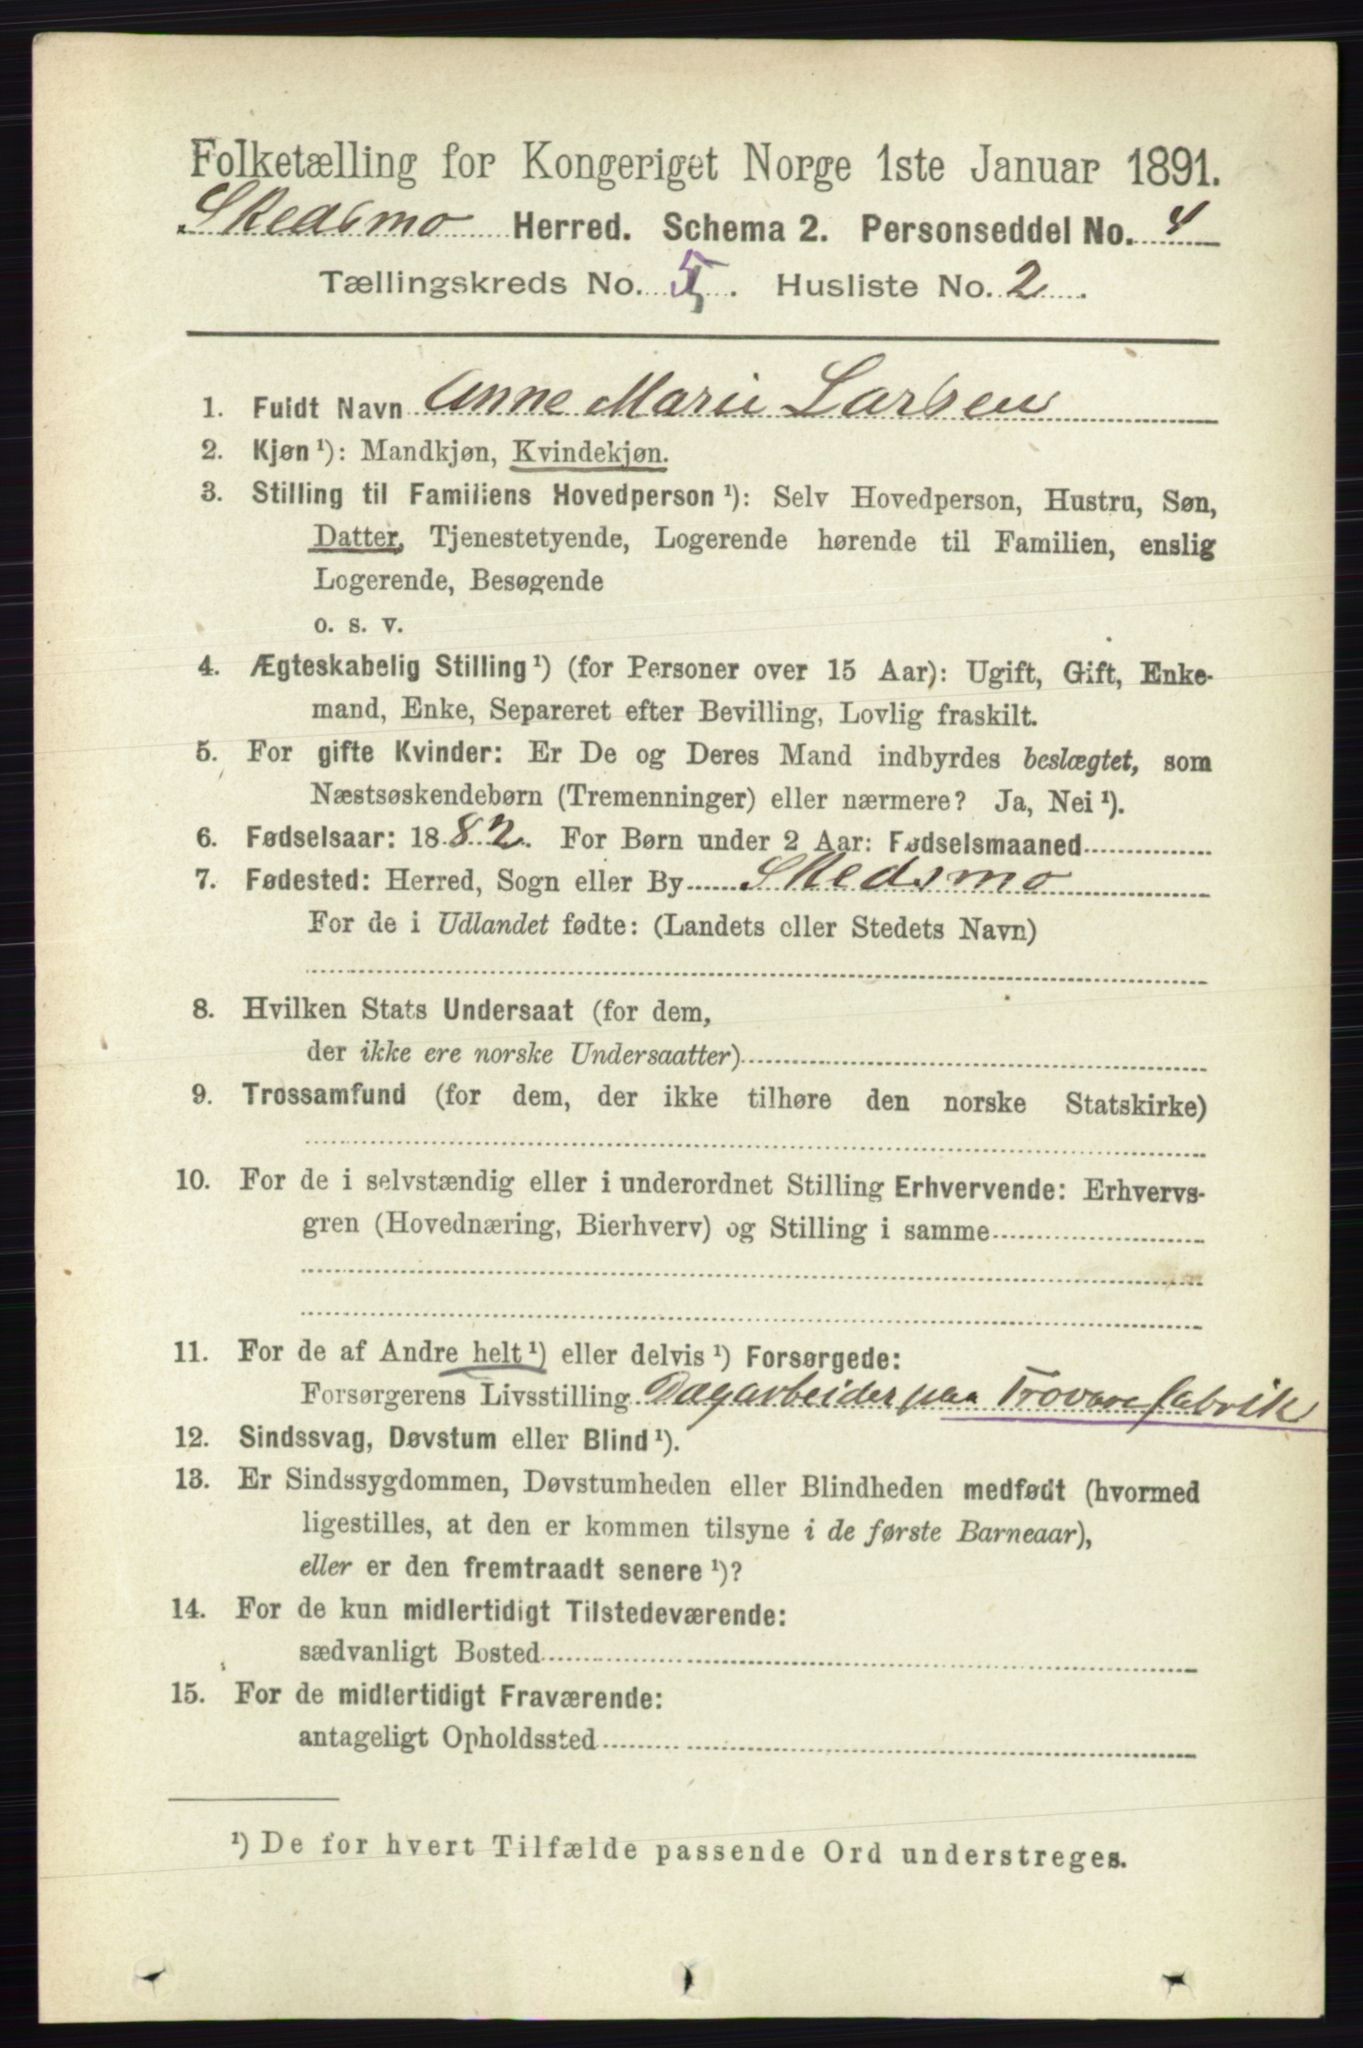 Folketælling for Kongeriget Norge 1ste Januar 1891.
Skedsmo Herred. Schema 2. Personseddel No. 4
Tællingskreds No. 5. Husliste No. 2.
1. Fuldt Navn Anne Marie Larsen
2. Kjøn ¹): Mandkjøn, Kvindekjøn.
3. Stilling til Familiens Hovedperson ¹): Selv Hovedperson, Hustru, Søn,
Datter, Tjenestetyende, Logerende hørende til Familien, enslig
Logerende, Besøgende
o. s. v.
4. Ægteskabelig Stilling ¹) (for Personer over 15 Aar): Ugift, Gift, Enke-
mand, Enke, Separeret efter Bevilling, Lovlig fraskilt.
5. For gifte Kvinder: Er De og Deres Mand indbyrdes beslægtet, som
Næstsøskendebørn (Tremenninger) eller nærmere? Ja, Nei ¹).
6. Fødselsaar: 1882. For Børn under 2 Aar: Fødselsmaaned
7. Fødested: Herred, Sogn eller By Skedsmo
For de i Udlandet fødte: (Landets eller Stedets Navn)
8. Hvilken Stats Undersaat (for dem,
der ikke ere norske Undersaatter)
9. Trossamfund (for dem, der ikke tilhøre den norske Statskirke)
10. For de i selvstændig eller i underordnet Stilling Erhvervende: Erhvervs-
gren (Hovednæring, Bierhverv) og Stilling i samme
11. For de af Andre helt ¹) eller delvis ¹) Forsørgede:
Forsørgerens Livsstilling Dagarbeider paa Trovarefabrik
12. Sindssvag, Døvstum eller Blind ¹).
13. Er Sindssygdommen, Døvstumheden eller Blindheden medfødt (hvormed
ligestilles, at den er kommen tilsyne i de første Barneaar),
eller er den fremtraadt senere ¹)?
14. For de kun midlertidigt Tilstedeværende:
sædvanligt Bosted
15. For de midlertidigt Fraværende:
antageligt Opholdssted
¹) De for hvert Tilfælde passende Ord understreges.